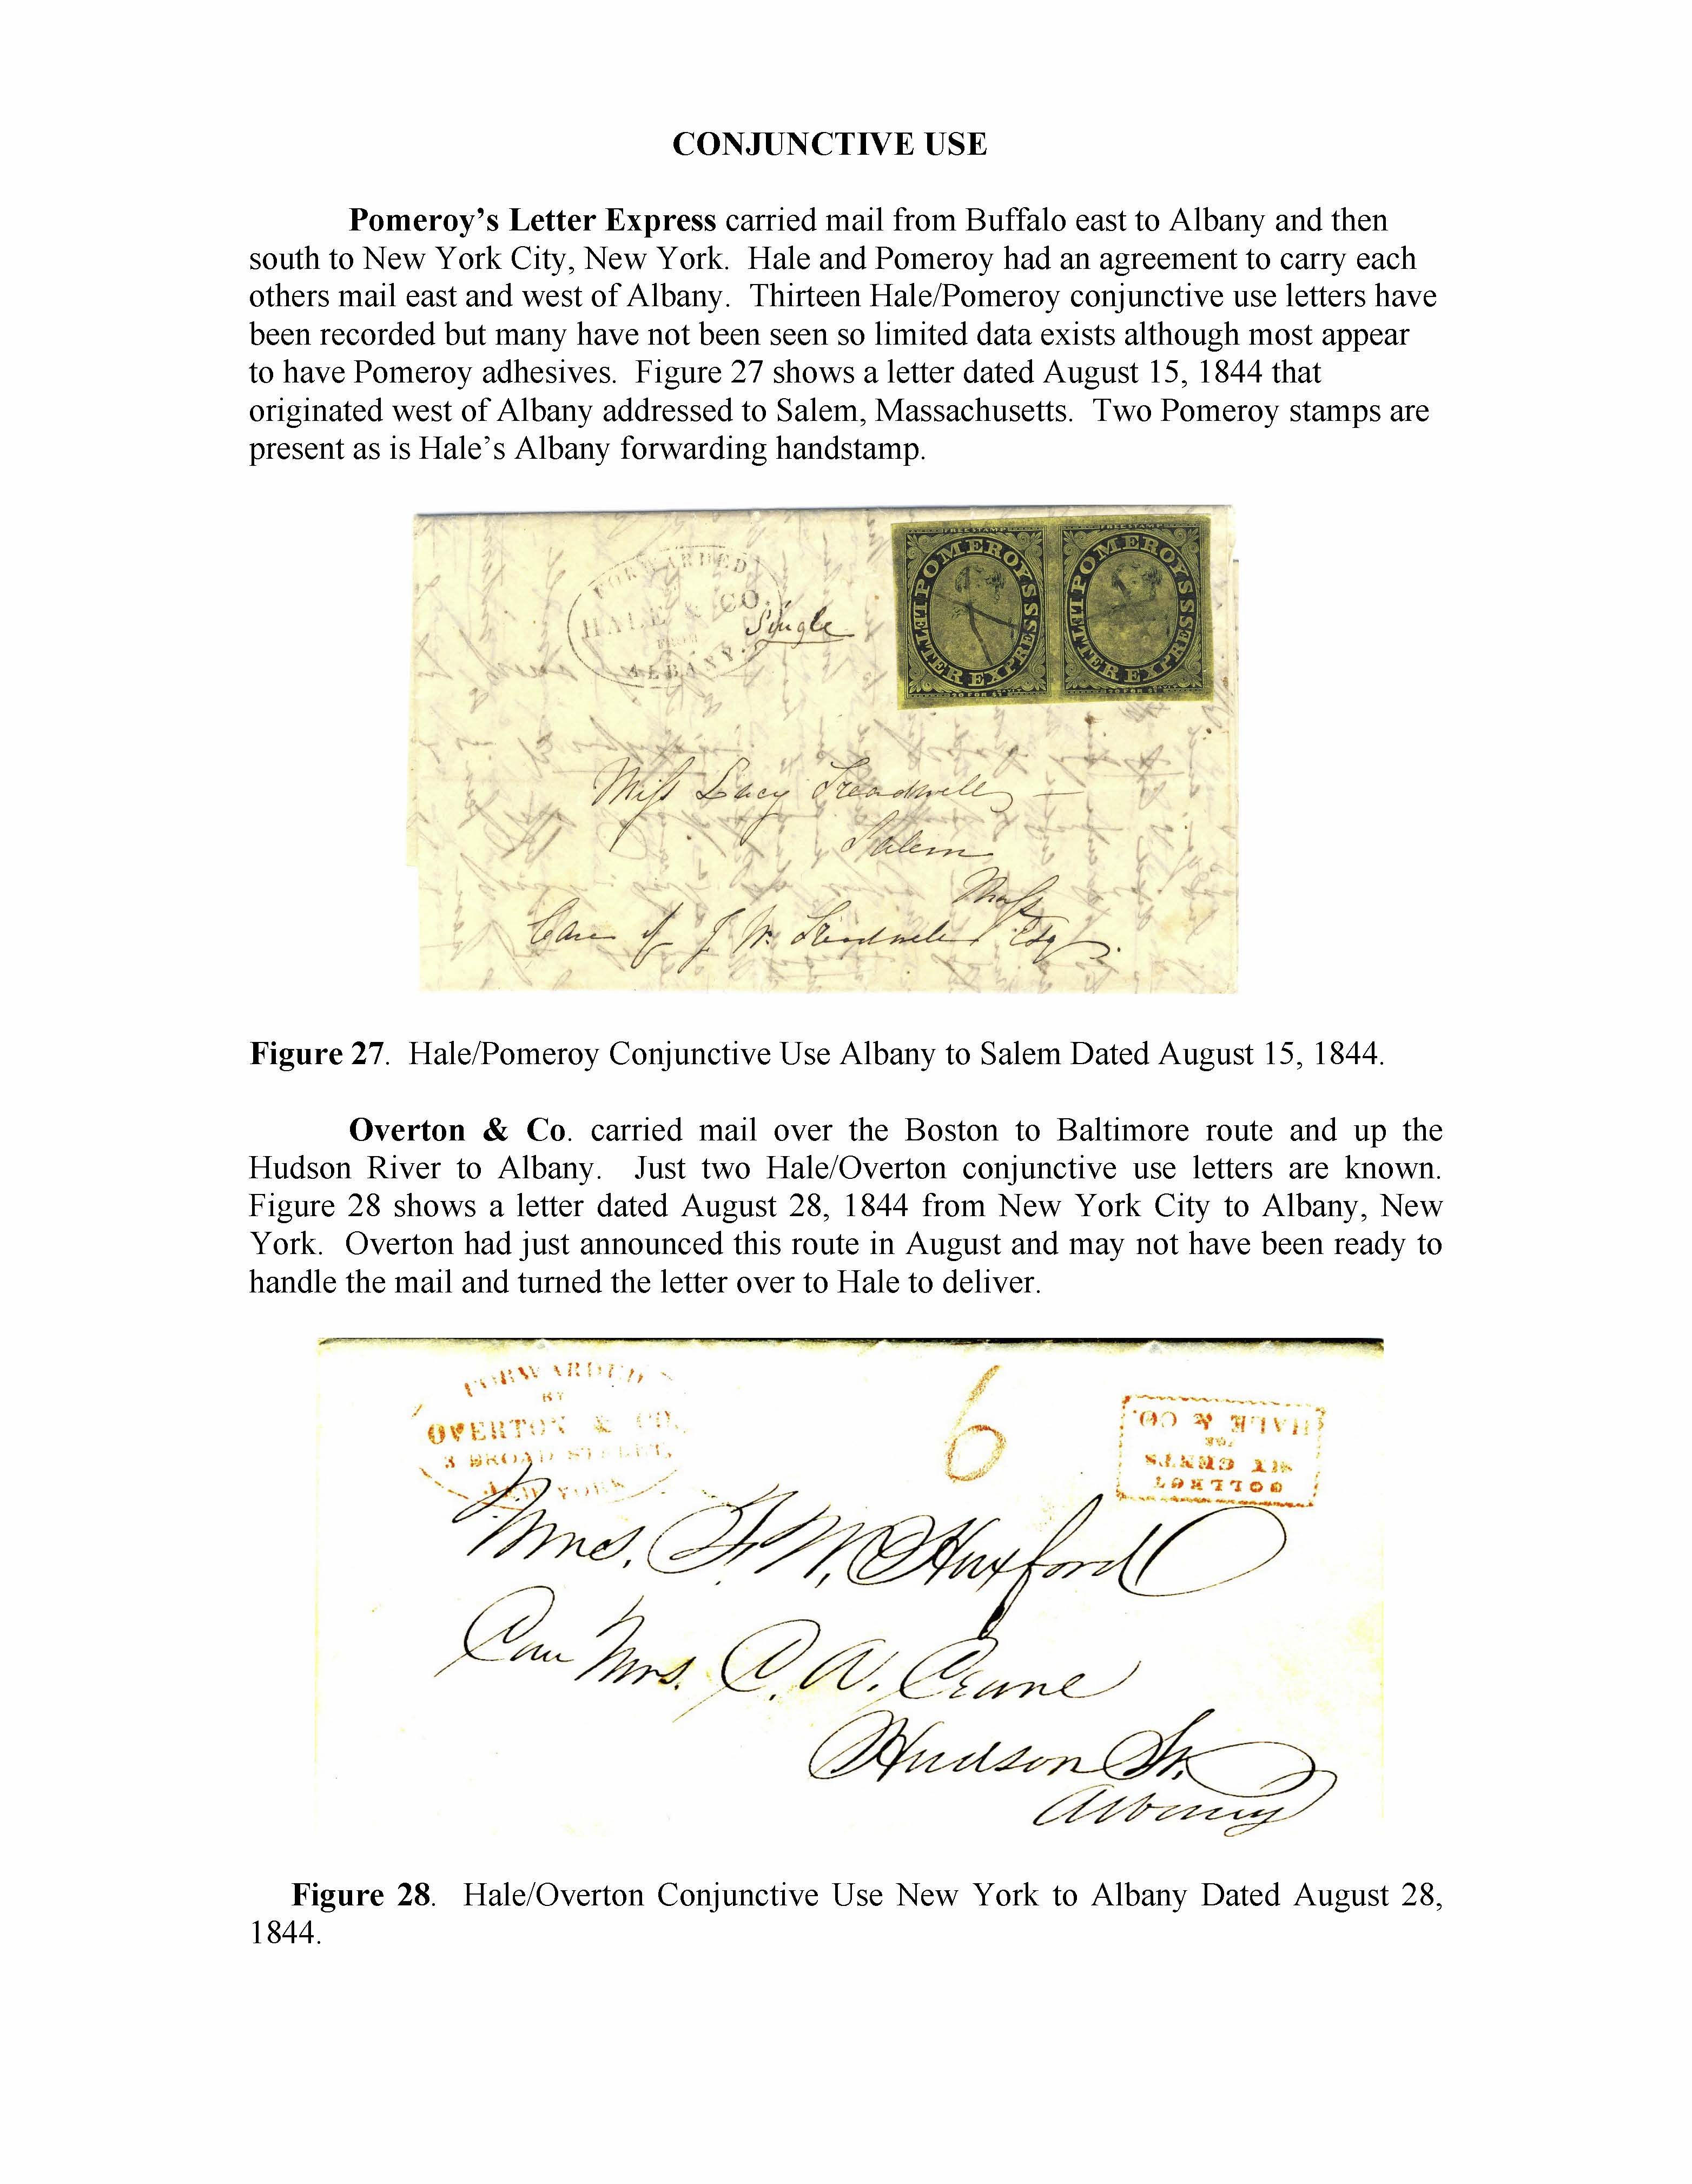 CONJUNCTIVE USE
Pomeroy's Letter Express carried mail from Buffalo east to Albany and then
south to New York City, New York. Hale and Pomeroy had an agreement to carry each
others mail east and west of Albany. Thirteen Hale/Pomeroy conjunctive use letters have
been recorded but many have not been seen so limited data exists although most appear
to have Pomeroy adhesives. Figure 27 shows a letter dated August 15, 1844 that
originated west of Albany addressed to Salem, Massachusetts. Two Pomeroy stamps are
present as is Hale's Albany forwarding handstamp.
FORWARDED
HALE & CO.
FROM
ALBANY.
Single
FREE STAMP
POMEROY'S LETTER EXPRESS
20 FOR $1
FREE STAMP
POMEROY'S LETTER EXPRESS
20 FOR $1
Miss Lucy Treadwell
Salem
Mass
Care of J. W. Treadwell Esq.
Figure 27. Hale/Pomeroy Conjunctive Use Albany to Salem Dated August 15, 1844.
Overton & Co. carried mail over the Boston to Baltimore route and up the
Hudson River to Albany. Just two Hale/Overton conjunctive use letters are known.
Figure 28 shows a letter dated August 28, 1844 from New York City to Albany, New
York. Overton had just announced this route in August and may not have been ready to
handle the mail and turned the letter over to Hale to deliver.
FORWARDED
BY
OVERTON & CO.
3 BROAD STREET,
NEW YORK
6
COLLECT
SIX CENTS
FOR
HALE & CO.
Mrs. F. M. Huxford
Care Mrs. C. A. Crane
Hudson St.
Albany
Figure 28. Hale/Overton Conjunctive Use New York to Albany Dated August 28,
1844.